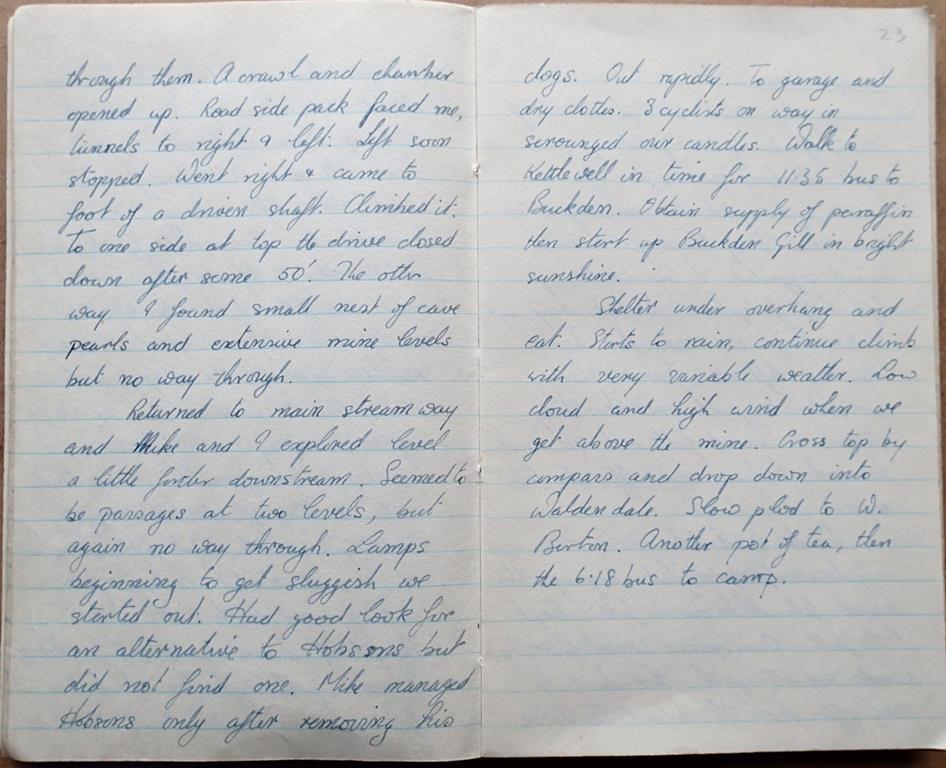 through them. A crawl and chamber
opened up. Road side pack faced me,
tunnels to right & left. Left soon
stopped. Went right & came to
foot of a driven shaft. Climbed it.
To one side at top the drive closed
down after some 50'. The other
way I found small nest of cave
pearls and extensive mine levels
but no way through.
Returned to main stream way
and Mike and I explored level
a little further downstream. Seemed to
be passages at two levels, but
again no way through. Lamps
beginning to get sluggish we
started out. Had good look for
an alternative to Hobsons but
did not find one. Mike managed
Hobsons only after removing his
23
clogs. Out rapidly. To garage and
dry clothes. 3 cyclists on way in
scrounged our candles. Walk to
Kettlewell in time for 11.35 bus to
Buckden. Obtain supply of paraffin
then start up Buckden Gill in bright
sunshine.
Shelter under overhang and
eat. Starts to rain, continue climb
with very variable weather. Low
cloud and high wind when we
get above the mine. Cross top by
compass and drop down into
Waldendale. Slow plod to W.
Burton. Another pot of tea, then
the 6.18 bus to camp.